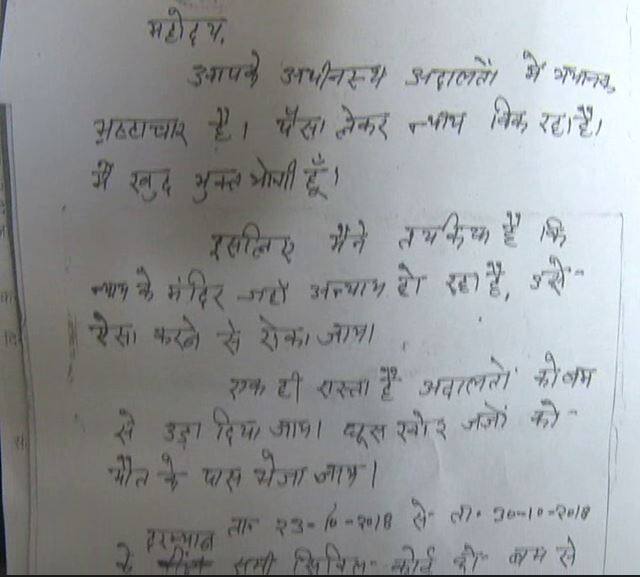 महोदय,
आपके अधीनस्थ अदालतों में भयानक
भ्रष्टाचार है। पैसा लेकर न्याय बिक रहा है।
मैं खुद भुक्त भोगी हूँ।
इसलिए मैंने तय किया है कि
न्याय के मंदिर जहाँ अन्याय हो रहा है, उसे-
ऐसा करने से रोका जाय।
एक ही रास्ता है अदालतों को बम
से उड़ा दिया जाय। घूस खोर जजों को-
मौत के पास भेजा जाय।
दरम्यान ता. 23-10-2018 से ता. 30-10-2018
के सभी सिविल कोर्ट को बम से